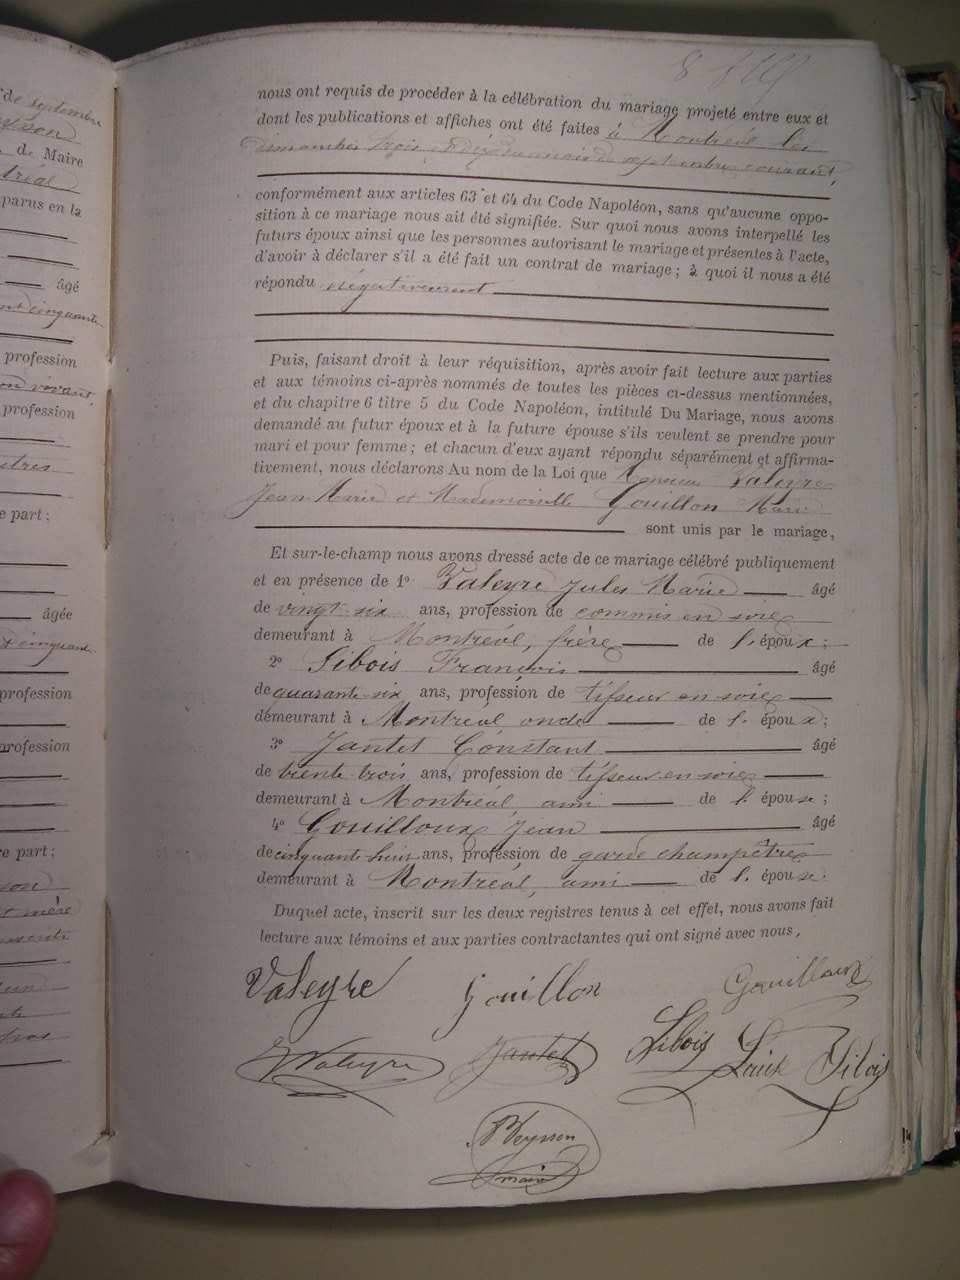 de septembre
de Maire
parus en la
âgé
cinquante
profession
profession
e part;
âgée
cinquante
profession
profession
re part;
et mère
nous ont requis de procéder à la célébration du mariage projeté entre eux et
dont les publications et affiches ont été faites à Montréal les
dimanches trois et dix du mois de septembre courant,
conformément aux articles 63 et 64 du Code Napoléon, sans qu'aucune oppo-
sition à ce mariage nous ait été signifiée. Sur quoi nous avons interpellé les
futurs époux ainsi que les personnes autorisant le mariage et présentes à l'acte,
d'avoir à déclarer s'il a été fait un contrat de mariage; à quoi il nous a été
répondu négativement
Puis, faisant droit à leur réquisition, après avoir fait lecture aux parties
et aux témoins ci-après nommés de toutes les pièces ci-dessus mentionnées,
et du chapitre 6 titre 5 du Code Napoléon, intitulé Du Mariage, nous avons
demandé au futur époux et à la future épouse s'ils veulent se prendre pour
mari et pour femme; et chacun d'eux ayant répondu séparément et affirma-
tivement, nous déclarons Au nom de la Loi que Monsieur Valeyre
Jean Marie et Mademoiselle Gouillon Marie
sont unis par le mariage,
Et sur-le-champ nous avons dressé acte de ce mariage célébré publiquement
et en présence de 1º Valeyre Jules Marie âgé
de vingt-six ans, profession de commis en soie
demeurant à Montréal, frère de l. époux;
2º Sibois François âgé
de quarante-six ans, profession de tisseur en soie
demeurant à Montréal oncle de l. époux;
3º Jantet Constant âgé
de trente-trois ans, profession de tisseur en soie
demeurant à Montréal ami de l. épouse;
4º Gouilloux Jean âgé
de cinquante-huit ans, profession de garde champêtre
demeurant à Montréal, ami de l. épouse.
Duquel acte, inscrit sur les deux registres tenus à cet effet, nous avons fait
lecture aux témoins et aux parties contractantes qui ont signé avec nous,
Valeyre Gouillon Gouilloux
Valeyre Jantet Sibois Sibois
Beysson
maire